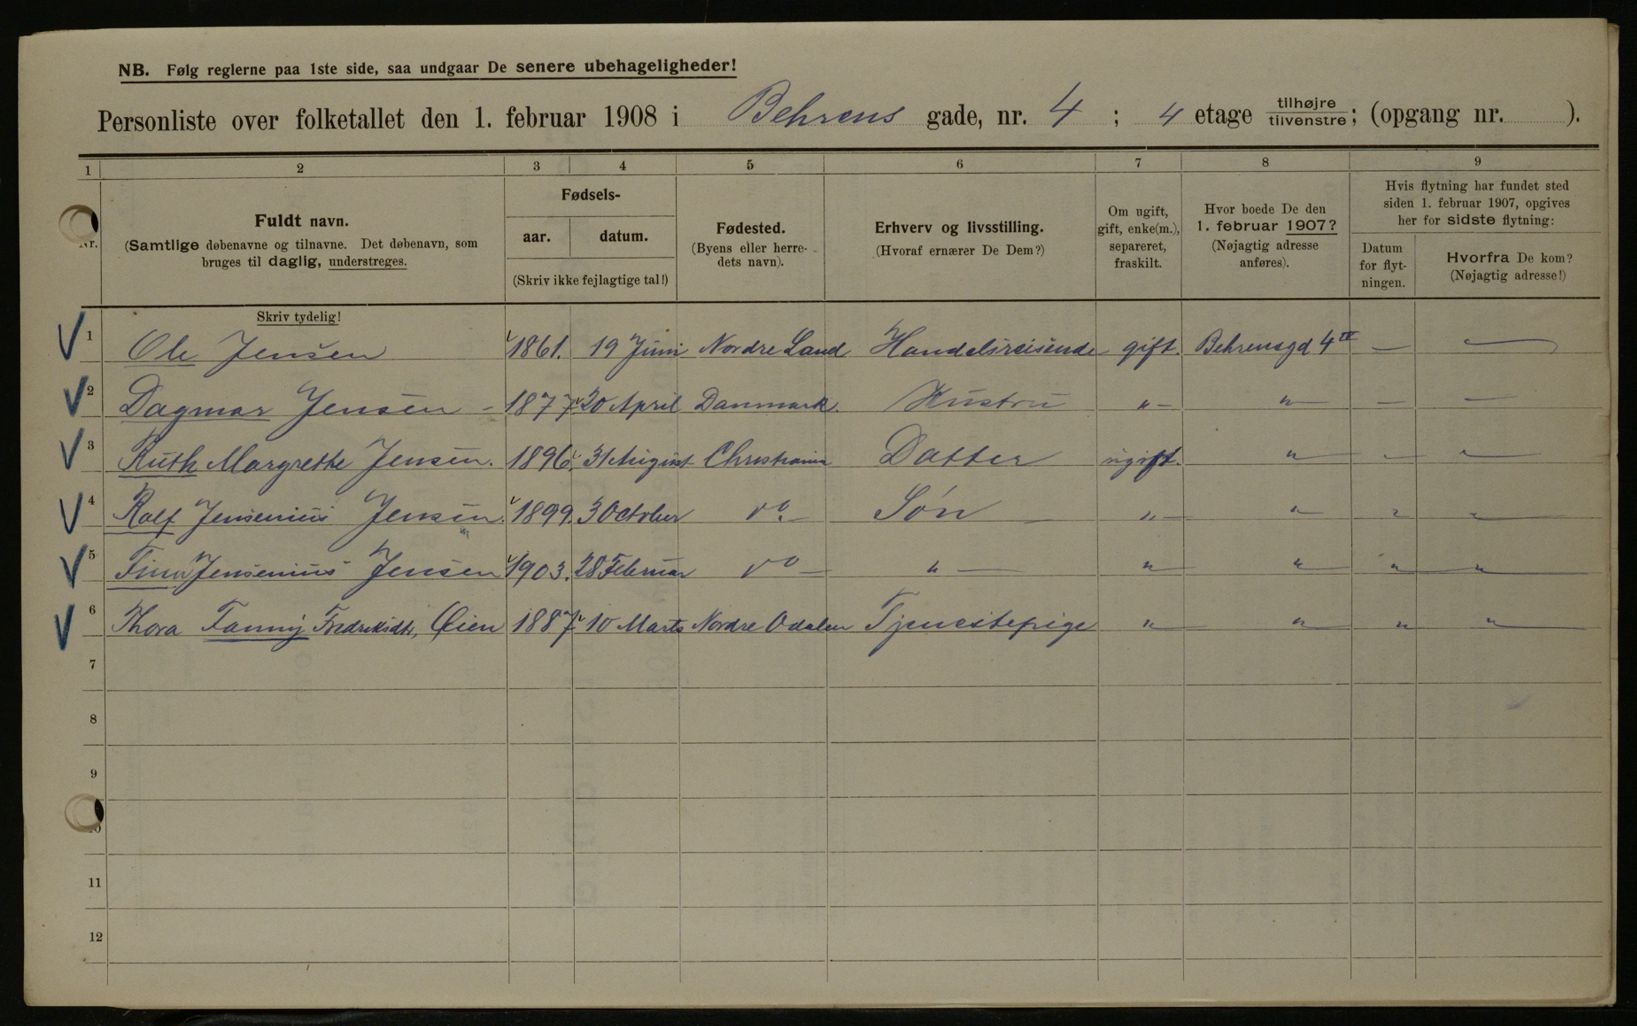 NB. Følg reglerne paa 1ste side, saa undgaar De senere ubehageligheder!
Personliste over folketallet den 1. februar 1908 i Behrens gade, nr. 4 ; 4 etage tilhøjre tilvenstre ; (opgang nr. ).
1 2 3 4 5 6 7 8 9
Nr.
Fuldt navn.
(Samtlige døbenavne og tilnavne. Det døbenavn, som
bruges til daglig, understreges.
Fødsels-
aar. datum.
(Skriv ikke fejlagtige tal!)
Fødested.
(Byens eller herre-
dets navn).
Erhverv og livsstilling.
(Hvoraf ernærer De Dem?)
Om ugift,
gift, enke(m.),
separeret,
fraskilt.
Hvor boede De den
1. februar 1907?
(Nøjagtig adresse
anføres).
Hvis flytning har fundet sted
siden 1. februar 1907, opgives
her for sidste flytning:
Datum
for flyt-
ningen.
Hvorfra De kom?
(Nøjagtig adresse!)
Skriv tydelig!
1 Ole Jensen 1861. 19 Juni Nordre Land Handelsreisende gift. Behrensgd 4 IV — —
2 Dagmar Jensen - 1877 20 April Danmark. Hustru " — " — — —
3 Ruth Margrethe Jensen. 1896. 31 August Christiania Datter ugift. " — — —
4 Rolf Jensenius Jensen. 1899. 3 October do. Søn — " — " — " — " —
5 Finn Jensenius Jensen 1903. 28 Februar do — " — " — " — " — " —
6 Thora Fanny Fredriksdtr, Øien 1887 10 Marts Nordre Odalen Tjenestepige " — " — " — " —
7
8
9
10
11
12